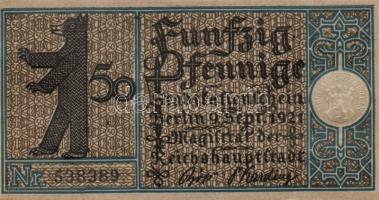 Fünfzig
50 Pfennige
Berlin 9. Sept. 1921
Magistrat der
Reichshauptstadt
Nr. 538389